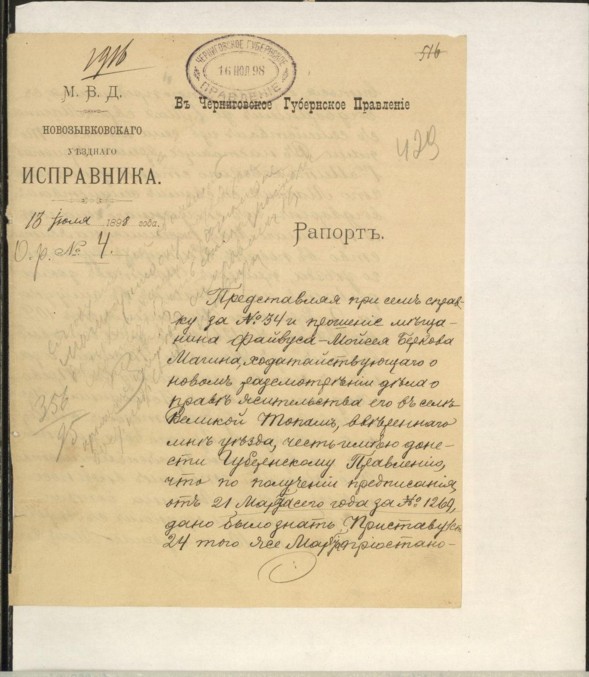 1916
516
ЧЕРНИГОВСКОЕ ГУБЕРНСКОЕ
16 ИЮЛ 98
ПРАВЛЕНІЕ
М. В. Д.
НОВОЗЫБКОВСКАГО
УѢЗДНАГО
ИСПРАВНИКА.
13 Іюля 1898 года.
О. р. № 4
Въ Черниговское Губернское Правленіе
429
Рапортъ.
Представляя при семъ справ-
ку за № 34 и прошеніе мѣща-
нина Файвуса-Мойсея Беркова
Магина, ходатайствующаго о
новомъ разсмотрѣніи дѣла о
правѣ жительства его въ селѣ
Великой Топали, ввѣреннаго
мнѣ уѣзда, честь имѣю доне-
сти Губернскому Правленію,
что по полученіи предписанія,
отъ 21 Марта сего года за № 1269,
дано было знать Приставу
24 того же Марта пріостано-
356
95